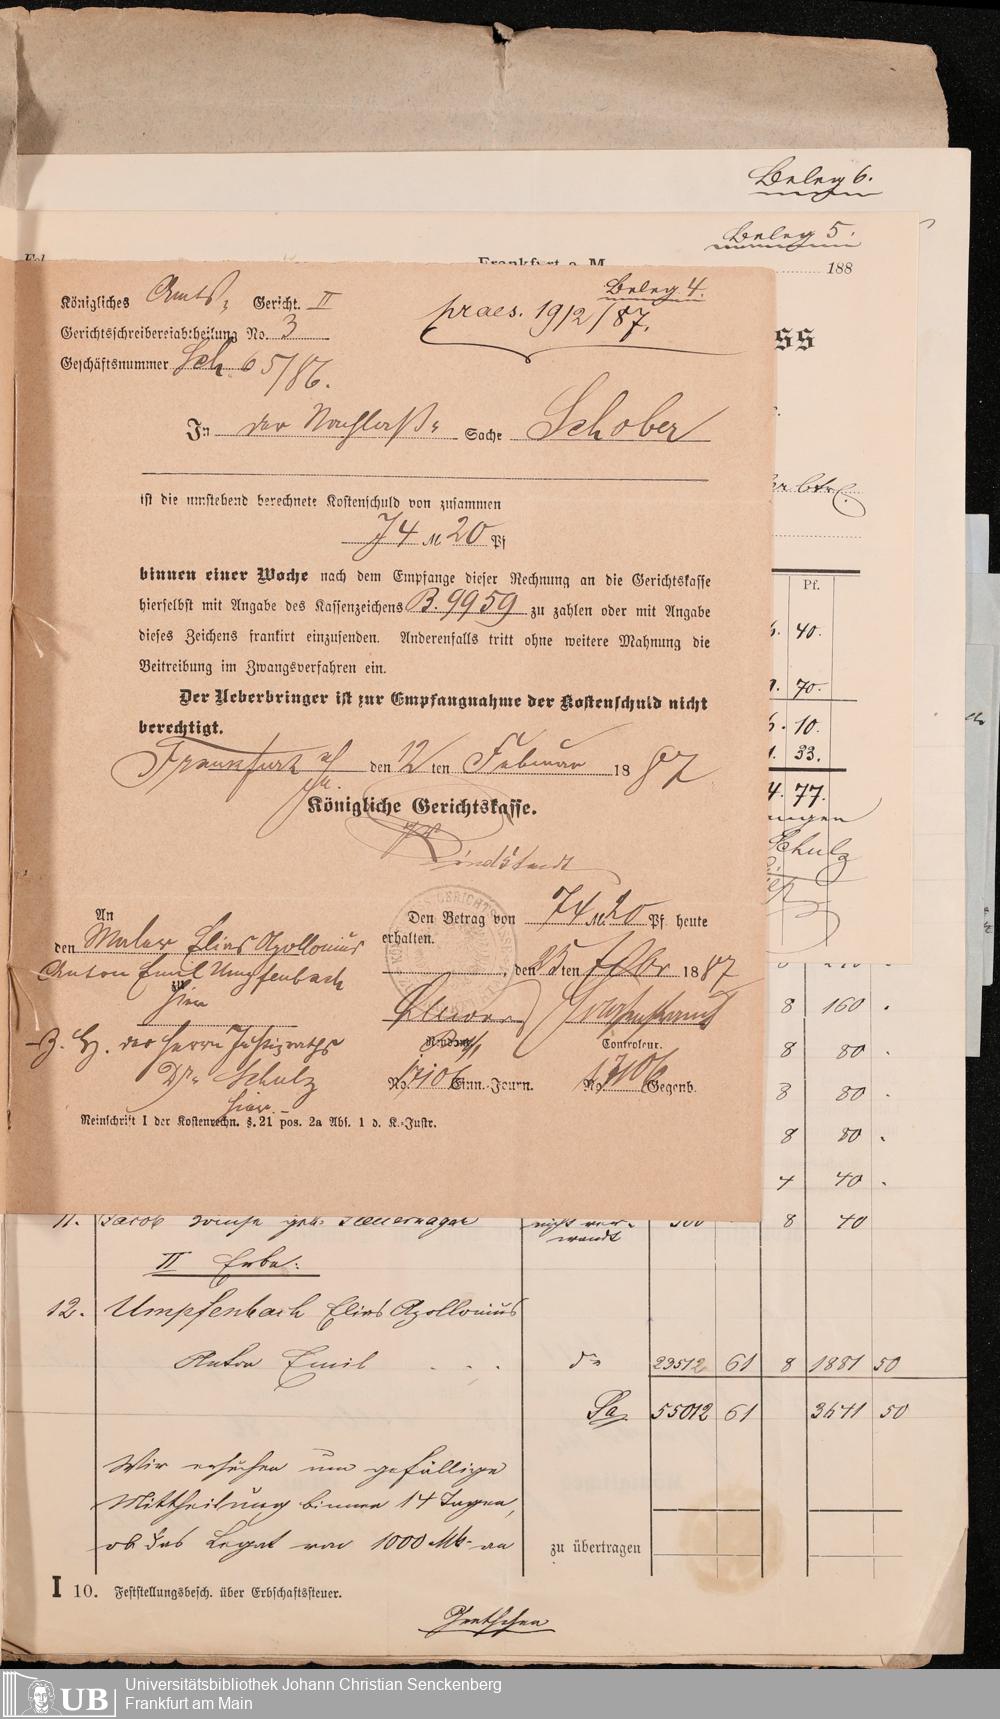 Beleg 6.
Beleg 5.
Frankfurt a. M. 188
Beleg 4.
Königliches Amts- Gericht. II
praes. 19/2/87.
Gerichtsschreibereiabtheilung No. 3
Geschäftsnummer Sch 65/86.
In der Nachlaß- Sache Schober
ist die umstehend berechnete Kostenschuld von zusammen
74 M 20 Pf
binnen einer Woche nach dem Empfange dieser Rechnung an die Gerichtskasse
hierselbst mit Angabe des Kassenzeichens B. 9959 zu zahlen oder mit Angabe
dieses Zeichens frankirt einzusenden. Anderenfalls tritt ohne weitere Mahnung die
Beitreibung im Zwangsverfahren ein.
Der Ueberbringer ist zur Empfangnahme der Kostenschuld nicht
berechtigt.
Frankfurt a/M. den 12 ten Februar 1887
Königliche Gerichtskasse.
Lindstaedt
An
den Maler Elias Apollonius
Anton Emil Umpfenbach
zu
hier
z. H. des Herrn Justizraths
Dr. Schulz
hier.
Den Betrag von 74 M. 20 Pf. heute
erhalten.
, den 25 ten Febr 1887
Rendant
Controleur.
No. 17106 Einn.-Journ. No. 17106 Gegenb.
Reinschrift I der Kostenrechn. §. 21 pos. 2a Abs. 1 d. K.-Instr.
ss
Pf.
40.
70.
10.
33.
4. 77.
Schulz
8 160 .
8 80 .
8 80 .
8 80 .
4 40 .
11. Jacob Louise geb. nicht ver- 500 8 40
wandt
II Erbe:
12. Umpfenbach Elias Apollonius
Anton Emil . . . do 23512 61 8 1881 50
Sa. 55012 61 3641 50
Wir ersuchen um gefällige
Mittheilung binnen 14 Tagen,
ob das Legat von 1000 Mk. an
zu übertragen
I 10. Feststellungsbesch. über Erbschaftssteuer.
UB
Universitätsbibliothek Johann Christian Senckenberg
Frankfurt am Main